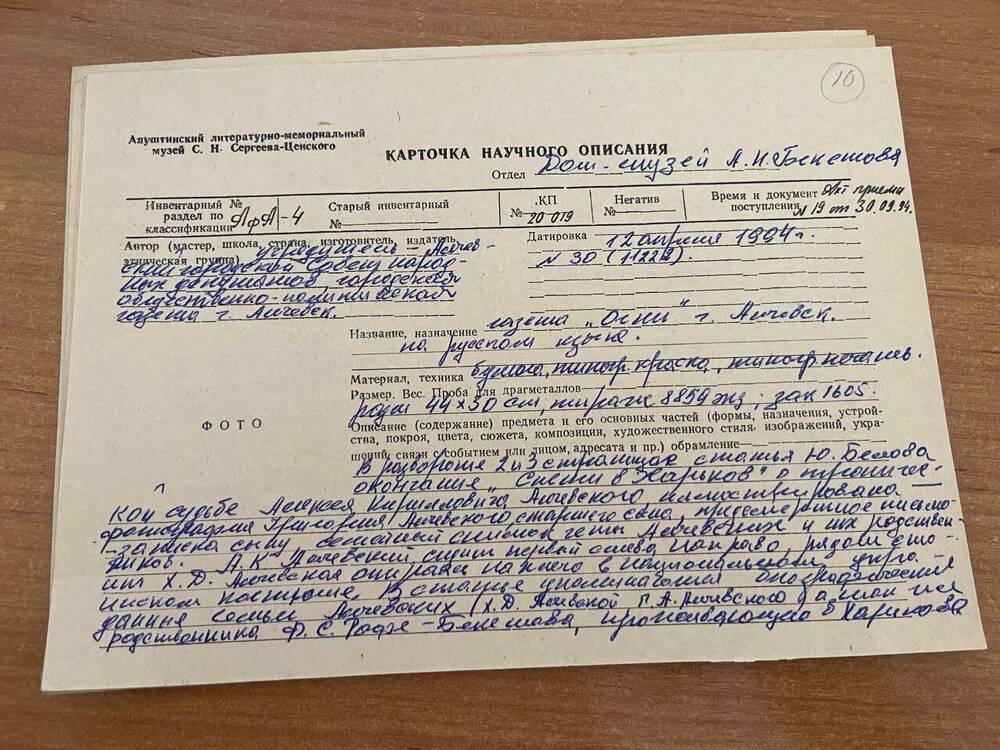 10
Алуштинский литературно-мемориальный
музей С. Н. Сергеева-Ценского
КАРТОЧКА НАУЧНОГО ОПИСАНИЯ
Отдел Дом-музей А.Н. Бекетова
Инвентарный №
раздел по
классификации АфА-4
Старый инвентарный
№
КП
№ 20 079
Негатив
№
Время и документ Акт приема
поступления N 19 от 30.09.94.
Автор (мастер, школа, страна, изготовитель, издатель,
этническая группа) учредители – Алчев-
ский городской Совет народ-
ных депутатов, городская
общественно-политическая
газета г. Алчевск.
Датировка 12 апреля 1994 г.
N 30 (11222).
Название, назначение газета „Огни" г. Алчевск.
на русском языке.
Материал, техника бумага, типогр. краска, типогр. печать.
Размер. Вес. Проба для драгметаллов
разм 44×30 см, тираж 8859 экз; зак 1605.
ФОТО
Описание (содержание) предмета и его основных частей (формы, назначения, устрой-
ства, покроя, цвета, сюжета, композиции, художественного стиля, изображений, укра-
шений, связи с событием или лицом, адресата и пр.) обрамление
В развороте 2 и 3 страницах статья Ю. Белова
окончание „Снести в Харьков" о трагичес-
кой судьбе Алексея Кирилловича Алчевского иллюстрирована
фотография Григория Алчевского, старшего сына, предсмертное письмо
-записка сыну, семейный снимок четы Алчевских и их родствен-
ников. А.К. Алчевский сидит первый слева направо, рядом сто-
ит Х.Д. Алчевская опираясь на него в национальном укра-
инском костюме. В статье упоминаются биографические
данные семьи Алчевских (Х.Д. Алчевской, Г.А. Алчевского а также
родственника Ф.С. Рофе-Бекетова, проживающего в Харькове